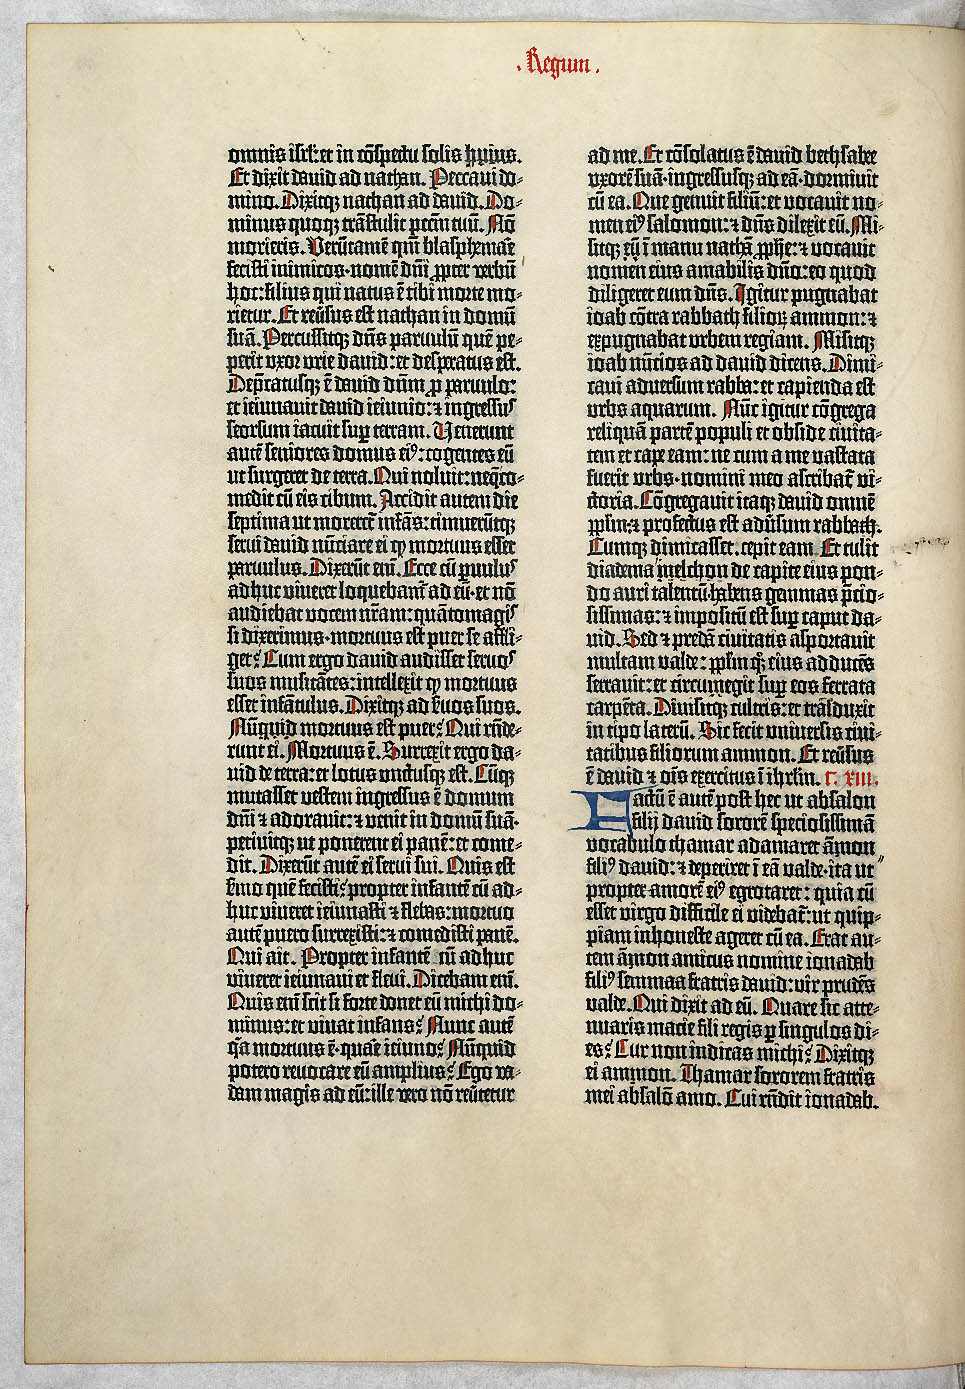 . Regum .
omnis isrl': et in cōspectu solis huius.
Et dixit david ad nathan. Peccavi do-
mino. Dixitqz nathan ad david. Do-
minus quoqz trāstulit pctm̄ tuū. Nō
morieris. Verūtamē qm̄ blasphemare
fecisti inimicos·nomē dn̄i ꝓpter verbū
hoc: filius qui natus ē tibi morte mo-
rietur. Et reūsus est nathan in domū
suā. Percussitqz dn̄s parvulū quē pe-
perit vxor vrie david: et desperatus est.
Dep̄catusqz ē david dn̄m ꝓ parvulo:
et ieiunavit david ieiunio: ⁊ ingressus
seorsum iacuit sup̱ terram. Venerunt
autē seniores domus eiꝰ: cogentes eū
ut surgeret de terra. Qui noluit: neqz co-
medit cū eis cibum. Accidit autem die
septima ut morereť infās: timuerūtqz
servi david nūciare ei ꝙ mortuus esset
parvulus. Dixerūt eni. Ecce cū ꝑvulus
adhuc viveret loquebamur ad eū·et nō
audiebat vocem nr̄am: quātomagis
si dixerimus·mortuus est puer se affli-
get? Cum ergo david audisset servos
suos musitātes: intellexit ꝙ mortuus
esset infātulus. Dixitqz ad s̄vos suos.
Nūquid mortuus est puer? Qui rn̄de-
runt ei. Mortuus ē. Surrexit ergo da-
vid de terra: et lotus unctusqz est. Cūqz
mutasset vestem ingressus ē domum
dn̄i ⁊ adoravit: ⁊ venit in domū suā·
petivitqz ut ponerent ei panē: et come-
dit. Dixerūt autē ei servi sui. Quis est
s̄mo quē fecisti? propter infantē cū ad-
huc viveret ieiunasti ⁊ flebas: mortuo
autē puero surrexisti: ⁊ comedisti panē.
Qui ait. Propter infantē cū adhuc
viveret ieiunavi et flevi. Dicebam eni.
Quis eni scit si forte donet eū michi do-
minus: et vivat infans? Nunc autē
q̄a mortuus ē·quare ieiuno? Nūquid
potero revocare eū amplius? Ego va-
dam magis ad eū: ille vero nō revertetur
ad me. Et cōsolatus ē david bethsabee
vxorē suā·ingressusqz ad eā·dormivit
cū ea. Que genuit filiū: et vocavit no-
men eiꝰ salomon: ⁊ dn̄s dilexit eū. Mi-
sitqz eū ī manu nathā ꝓphe: ⁊ vocavit
nomen eius amabilis dn̄o: eo quod
diligeret eum dn̄s. Igitur pugnabat
ioab cōtra rabbath filioꝝ ammon: ⁊
expugnabat vrbem regiam. Misitqz
ioab nūcios ad david dicens. Dimi-
cavi adversum rabba: et capienda est
vrbs aquarum. Nūc igitur cōgrega
reliquā partē populi et obside civita-
tem et cape eam: ne cum a me vastata
fuerit vrbs·nomini meo ascribať vi-
ctoria. Cōgregavit itaqz david omnē
pp̄lm: ⁊ profectus est adūsum rabbath.
Cumqz dimicasset·cepit eam. Et tulit
diadema melchon de capite eius pon-
do auri talentū·habens gemmas p̄cio-
sissimas: ⁊ impositū est sup̱ caput da-
vid. Sed ⁊ predā civitatis asportavit
multam valde: pp̄lm qz eius adducēs
serravit: et circumegit sup̱ eos ferrata
carpēta. Divisitqz cultris: et trāsduxit
in tipo laterū. Sic fecit universis civi-
tatibus filiorum ammon. Et reūsus
ē david ⁊ oīs exercitus ī ihrl̄m. c. XIII.
Factū ē autē post hec ut absalon
filij david sororē speciosissimā
vocabulo thamar adamaret āmon
filiꝰ david: ⁊ deperiret ī eā valde·ita ut
propter amorē eiꝰ egrotaret: quia cū
esset virgo difficile ei videbať: ut quip-
piam inhoneste ageret cū ea. Erat au-
tem āmon amicus nomine ionadab
filiꝰ semmaa fratris david: vir prudēs
valde. Qui dixit ad eū. Quare sic atte-
nuaris macie fili regis ꝑ singulos di-
es? Cur non indicas michi? Dixitqz
ei ammon. Thamar sororem fratris
mei absalō amo. Cui rn̄dit ionadab.